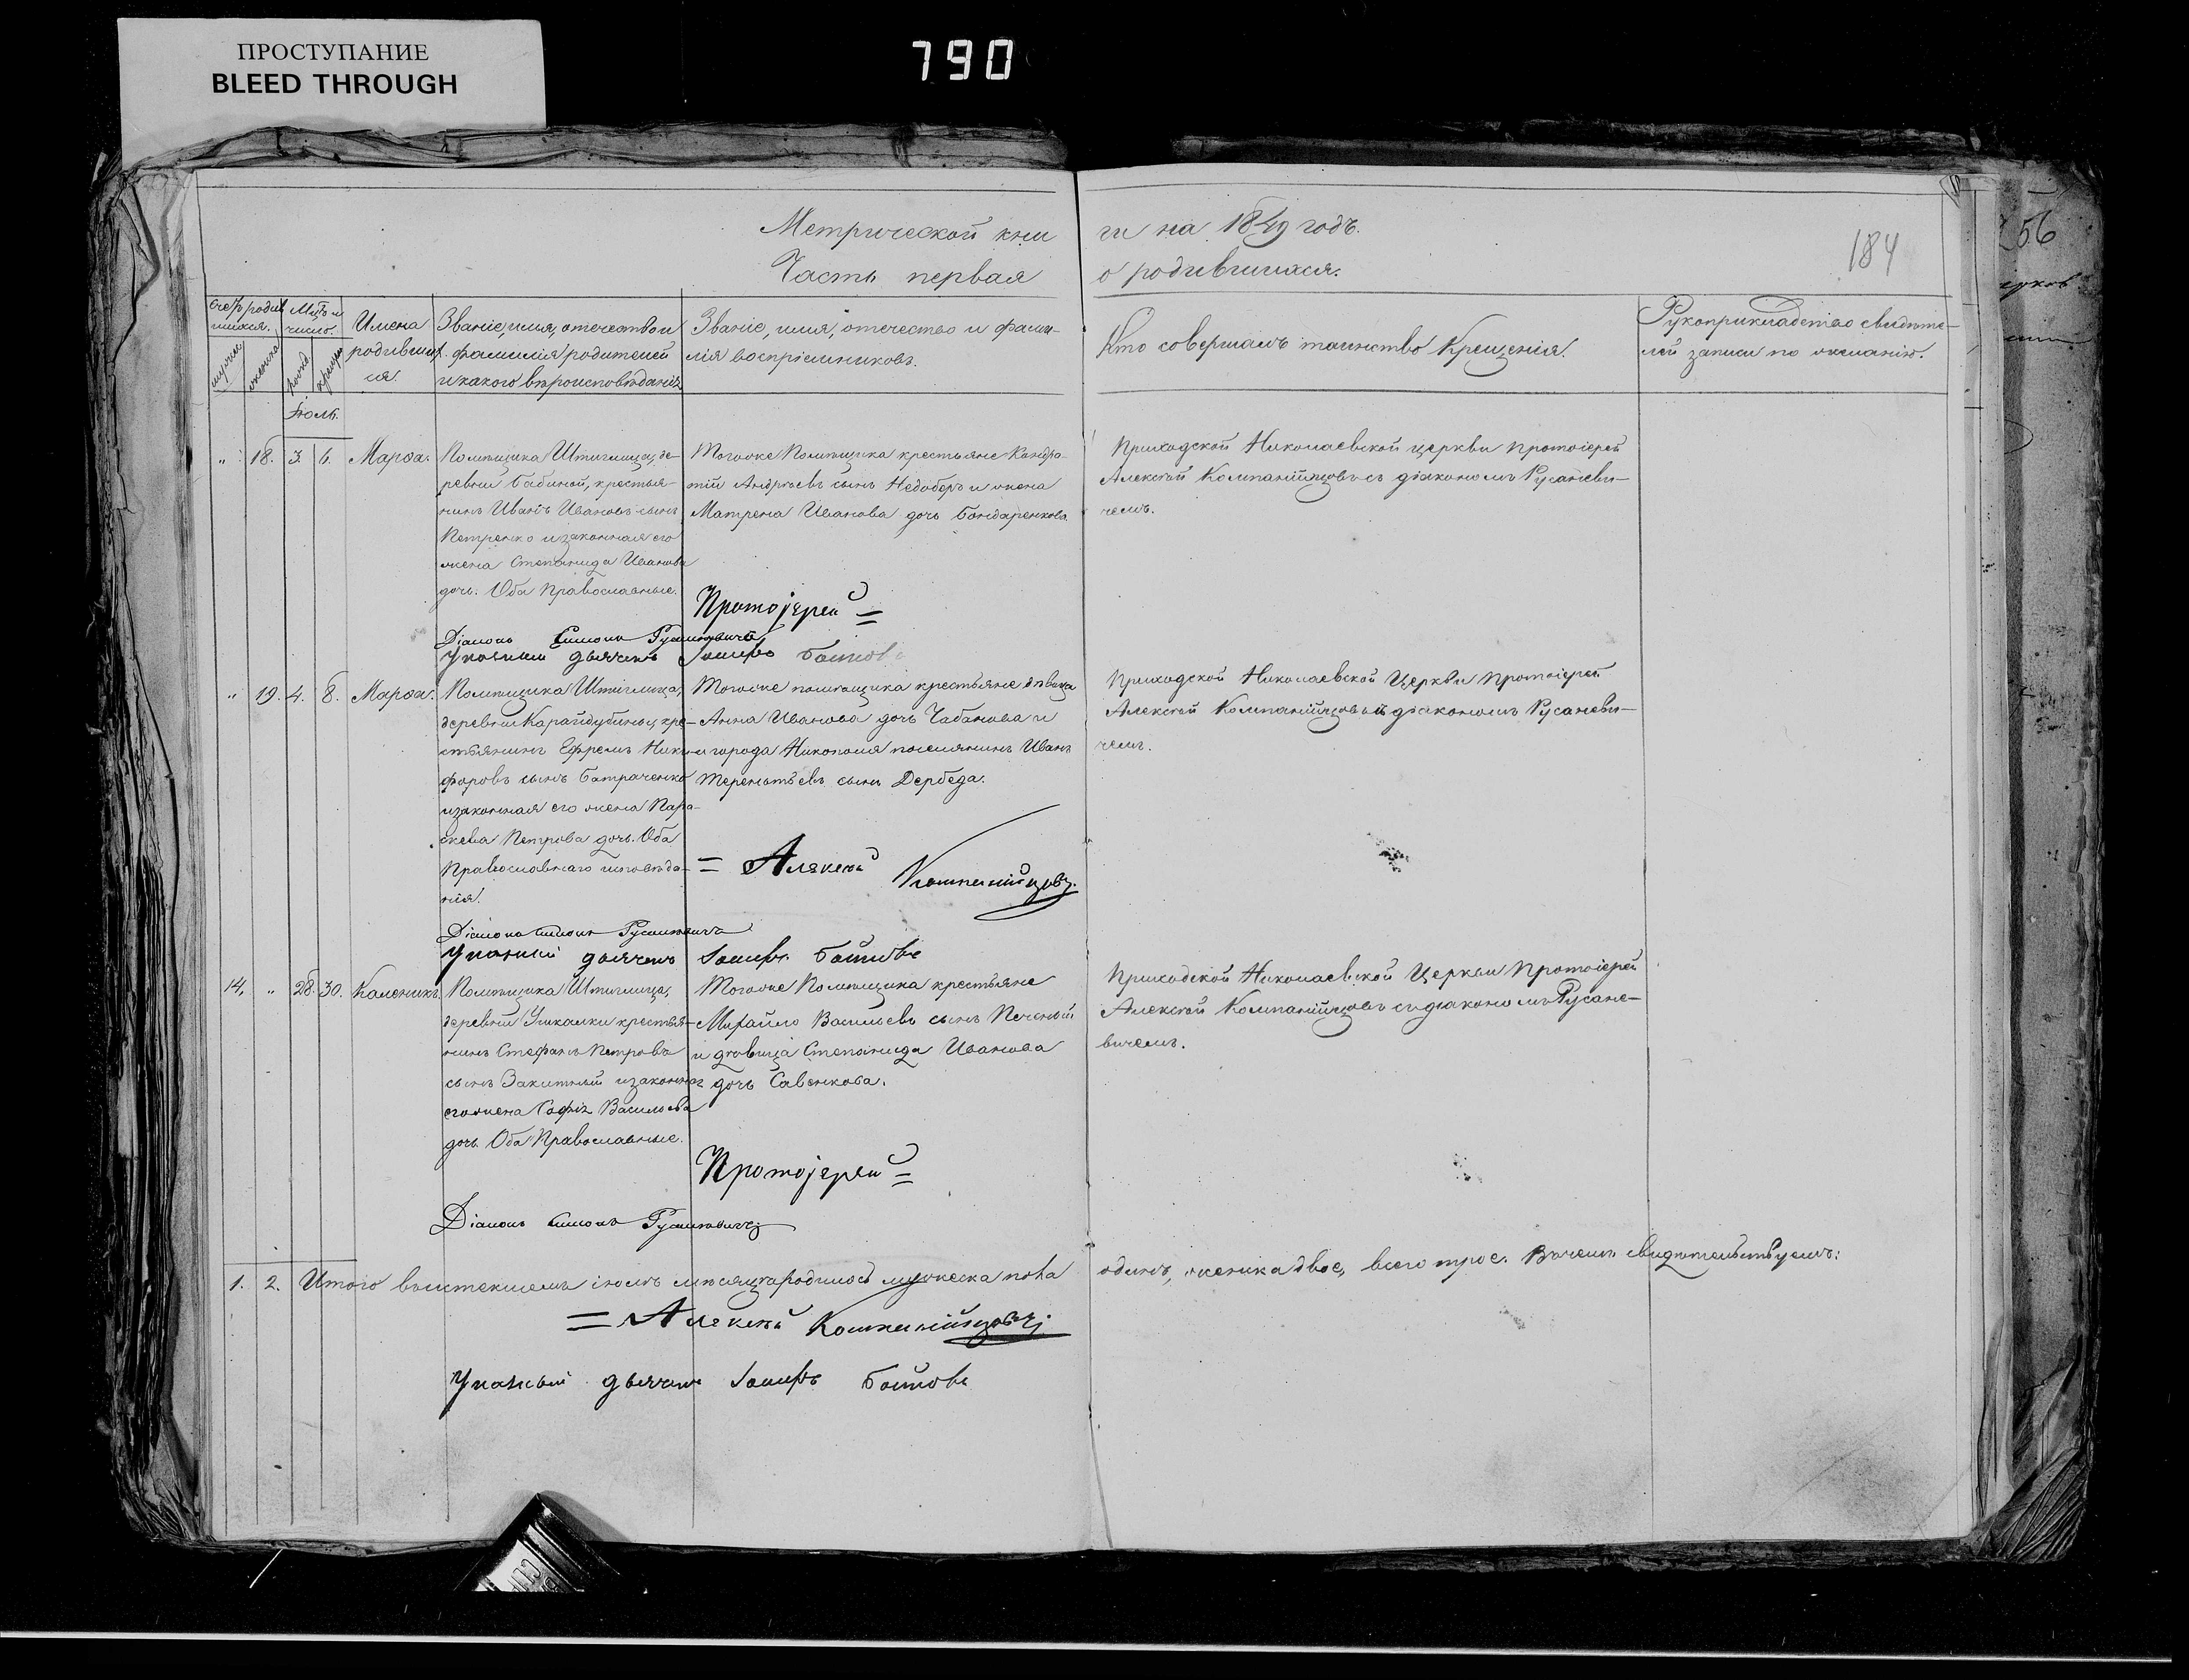 ПРОСТУПАНИЕ
BLEED THROUGH
790
Метрической кни
ги на 1849 годъ.
184
Часть первая
о родившихся.
256
Счетъ родив
шихся.
мужска
женска
Мѣсяцъ и
число.
рожд.
крещен
Имена
родивших
ся.
Званіе, имя, отечество и
фамилія родителей
и какого вѣроисповѣданія
Званіе, имя, отечество и фами-
лія воспріемниковъ.
Кто совершалъ таинство Крещенія.
Рукоприкладство свидѣте-
лей записи по желанію.
Іюль.
" 18. 3. 6. Марѳа.
Помѣщика Штиглица, де-
ревни Бабиной, крестья-
нинъ Иванъ Ивановъ сынъ
Петренко и законная его
жена Степанида Иванова
дочь. Оба Православные.
Тогоже Помѣщика крестьяне Кондра-
тій Андреевъ сынъ Недоборъ и жена
Матрена Иванова дочь Бондаренкова.
Приходской Николаевской церкви протоіерей
Алексѣй Компанійцовъ съ діакономъ Русаневи-
чемъ.
Протоіерей =
Діаконъ Симонъ Русаневичъ
Указный дьячекъ Іосифъ Боитовъ
" 19. 4. 8. Марѳа.
Помѣщика Штиглица,
деревни Карайдубины, кре-
стьянинъ Ефремъ Ники-
форовъ сынъ Батраченко
и законная его жена Пара-
скева Петрова дочь. Оба
Православнаго исповѣда-
нія.
Тогоже помѣщика крестьяне дѣвица
Анна Иванова дочь Чабанова и
и города Никополя поселянинъ Иванъ
Терентьевъ сынъ Дербеда.
Приходской Николаевской Церкви протоіерей
Алексѣй Компанійцовъ съ діакономъ Русаневи-
чемъ.
= Алексѣй Компанійцовъ.
Діаконъ Симонъ Русаневичъ
Указный дьячекъ Іосифъ Боитовъ
14. " 28. 30. Каленикъ.
Помѣщика Штиглица,
деревни Ушкалки крестья-
нинъ Стефанъ Петровъ
сынъ Закитный и законная
его жена Софія Васильева
дочь. Оба Православные.
Тогоже Помѣщика крестьяне
Михайло Васильевъ сынъ Печеный
и дѣвица Степанида Иванова
дочь Савенкова.
Приходской Николаевской Церкви Протоіерей
Алексѣй Компанійцовъ съ діакономъ Русане-
вичемъ.
Протоіерей =
Діаконъ Симонъ Русаневичъ
1. 2. Итого въ истекшемъ іюлѣ мѣсяцѣ родилось мужеска пола
одинъ, женска двое, всего трое. Въ чемъ свидѣтельствуемъ:
= Алексѣй Компанійцовъ
Указный дьячекъ Іосифъ Боитовъ